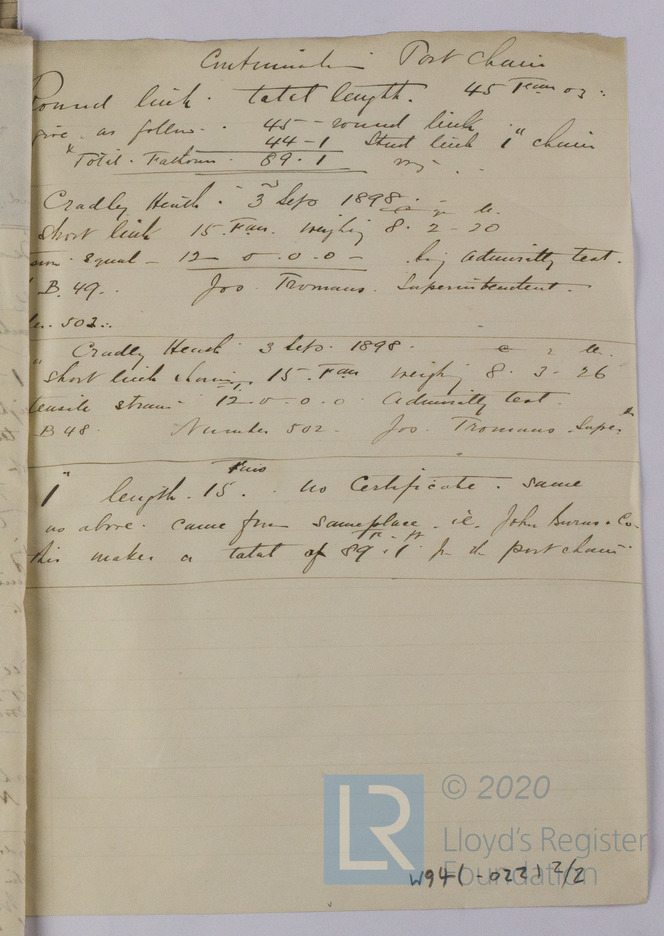 Continuation Port Chain
Round link. total length. 45 Fam
give as follow. 45 - round link
44-1 Stud link 1" chain
"Total. Fathoms. 89.1
Cradley Heath. 3 Sept 1898.
Short link 15 Fam. weighing 8. 2 - 20
equal - 12 - 0 . 0 . 0 - Admiralty test.
B. 49. Jos. Tromans. Superintendent.
502.
" Cradley Heath 3 Sept. 1898.
Short link chain, 15. Fam weighing 8. 3. 26
tensile strain 12 - 0 . 0 . 0 Admiralty test
B 48 Number 502. Jos. Tromans. Super
1" length. 15. Fms. no Certificate. same
as above. came from same place. ie. John Burns & Co.
this makes a total of 89 Fm. 1 ft for the port chain.
© 2020
LR
Lloyd's Register
Foundation
W941-0221 2/2